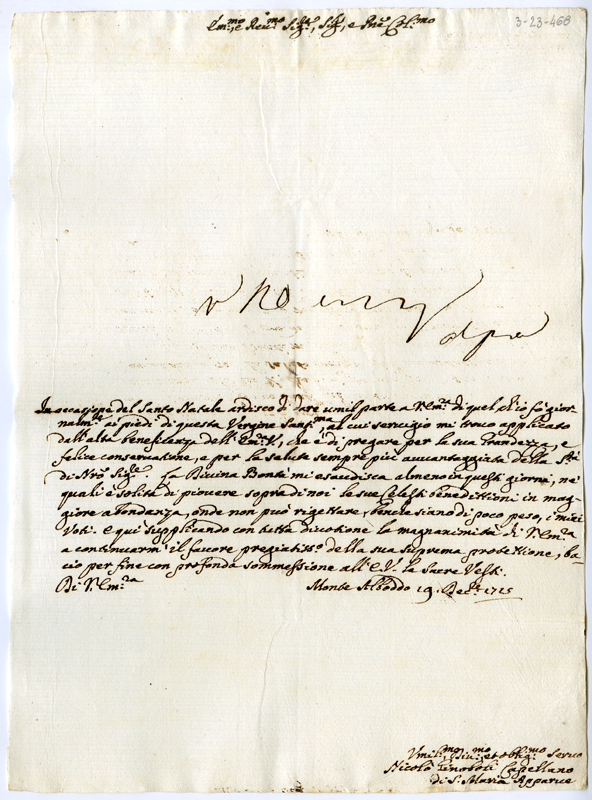 3-23-468
Em:mo, e Reu:mo Sig:re, Sig:, e Pne: Col:mo
In occasione del Santo Natale ardisco di dare umil parte a V.Em:za di quel ch'io fò gior-
nalm:te ai piedi di questa Vergine Santis:ma, al cui servigio mi trovo applicato
dall'alta beneficenza dell'Em:za V., che è di pregare per la sua Grandezza, e
felice conservatione, e per la salute sempre più auvantaggiata della S:tà
di Nrõ Sig:re. La Divina Bontà mi esaudisca almeno in questi giorni, ne'
quali è solita di piovere sopra di noi le sue Celesti benedittioni in mag-
giore abondanza, onde non può rigettare, benche siano di poco peso, i miei
Voti. E qui supplicando con tutta divotione la magnanimità di V.Em:za
a continuarmi il favore pregiatiss:o della sua suprema protettione, ba-
cio per fine con profonda sommessione all'E.V. la Sacre Vesti.
Di V.Em:za
Monte Alboddo 19. Dec:re 1725
Umil:mo, Diu:mo, et obblig:mo Servo
Nicolò Capellano
di S. Maria Apparve